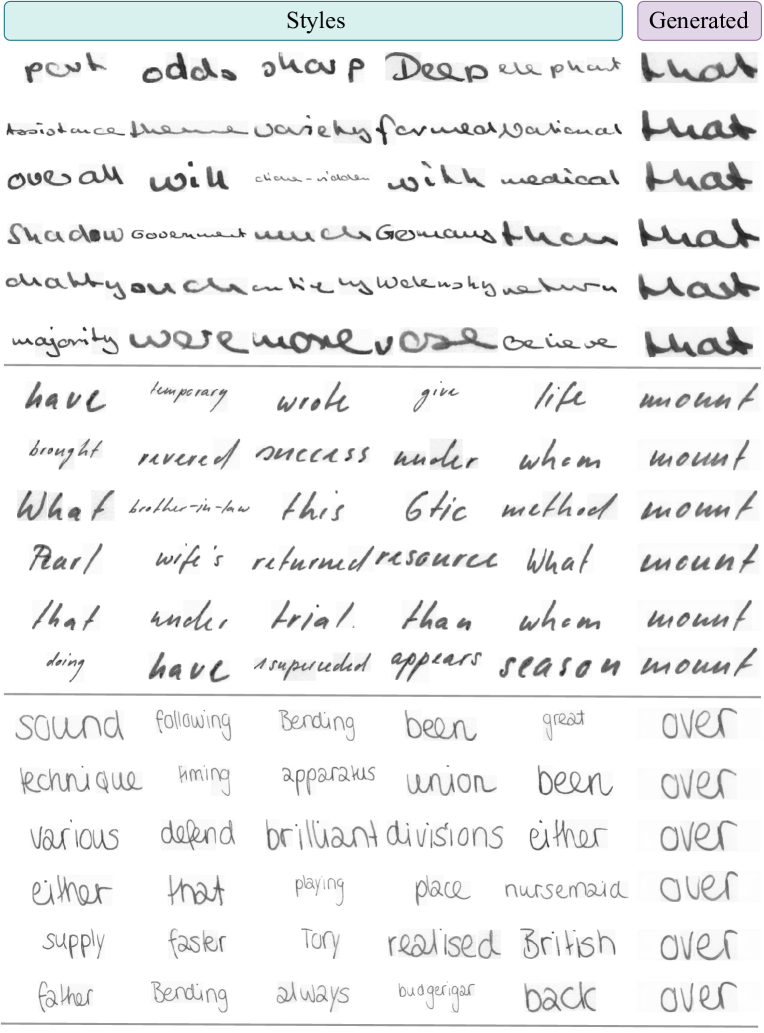 Styles Generated
part odds sharp Deep elephant that
Assistance theme variety formed National that
overall will cliche-ridden with medical that
Shadow Government much Germans than that
chatty such entirely Welensky return that
majority were more vose Believe that
have temporary wrote give life mount
brought revered success under whom mount
What brother-in-law this 6tic method mount
Pearl wife's returned resource What mount
that under trial. than whom mount
doing have superseded appears season mount
sound following Bending been great over
technique timing apparatus union been over
various defend brilliant divisions either over
either that playing place nursemaid over
supply faster Tory realised British over
father Bending always budgerigar back over